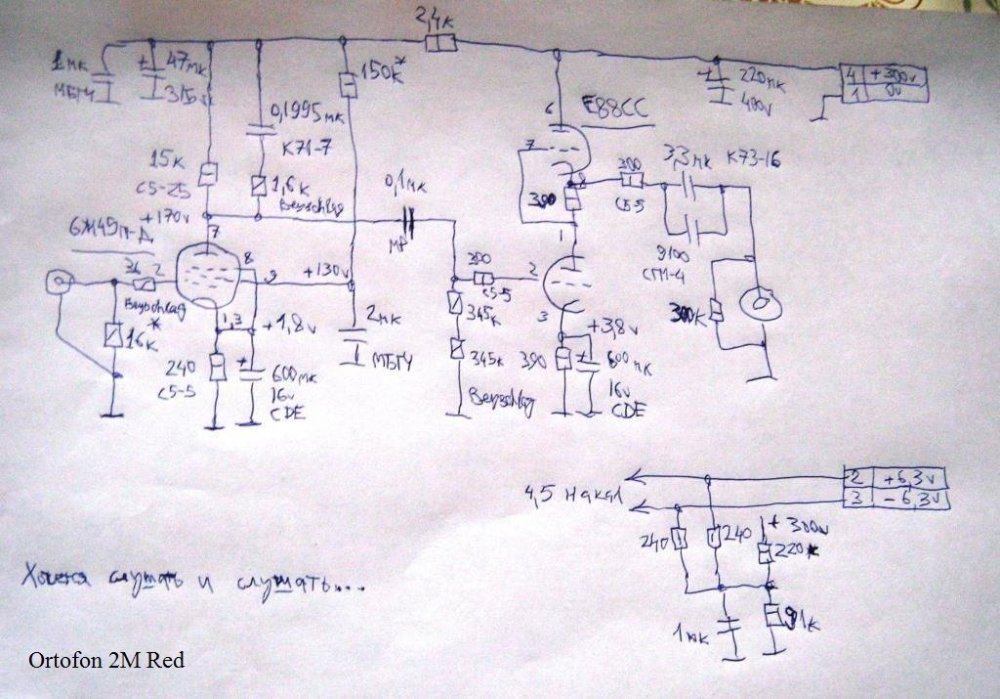 2,4к
1мк
МБГЧ
47мк
315v
0,1995мк
К71-7
150к*
15к
С5-25
1,6к
Beyschlag
+170v
6Ж49П-Д
7
8
9
36
2
Beyschlag
*
16к
1,3
+1,8v
240
С5-5
600мк
16v
CDE
+130v
2мк
МБГЧ
0,1мк
300
С5-5
345к
345к
Beyschlag
6
E88CC
7
8
390
1
2
3
+3,8v
390
600мк
16v
CDE
300
С5-5
3,3мк К73-16
9100
СГМ-4
300К
220мк
400v
4 +300v
1 0v
4,5 накал
2 +6,3v
3 -6,3v
240
240
+300v
220к
1мк
91к
Хочется слушать и слушать...
Ortofon 2M Red